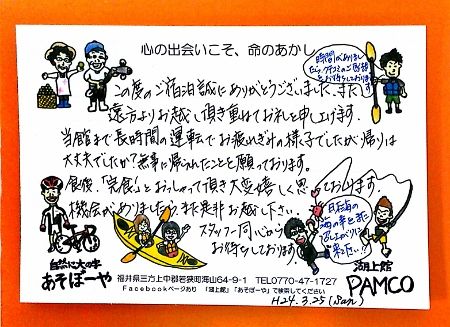 心の出会いこそ、命のあかし
この度のご宿泊誠にありがとうございました。また
遠方よりお越し頂き重ねてお礼を申し上げます。
当館まで長時間の運転でお疲れぎみの様子でしたが帰りは
大丈夫でしたか?無事に帰られたことを願っております。
食後、「完食」とおっしゃって頂き大変嬉しく思っております。
機会がありましたら、また是非お越し下さい。
スタッフ一同心から
お待ちしております。
時間がありまし
たら、クチコミのご投稿
をお待ちしております
の幸を
召し上がりに
来て下さい!!
自然に大の字
あそぼーや
湖上館
PAMCO
福井県三方上中郡若狭町海山64-9-1 TEL0770-47-1727
Facebookページあり 「湖上館」「あそぼーや」で検索してください
H24.3.25(Sun)